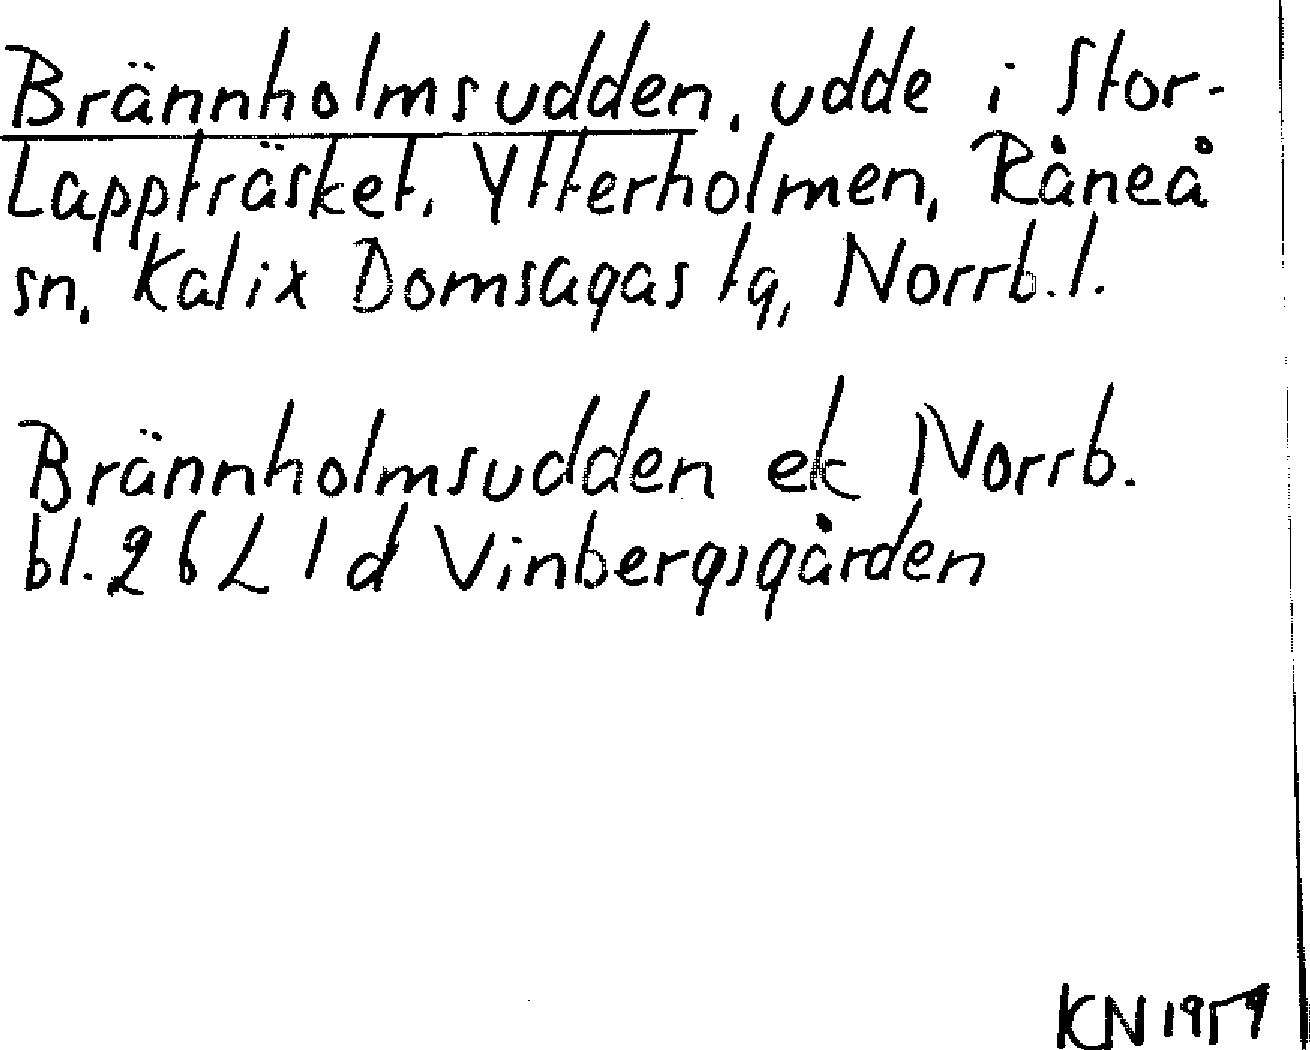 Brännholmsudden, udde i Stor-
Lappträsket, Ytterholmen, Råneå
sn, Kalix Domsagas tg, Norrb. l.
Brännholmsudden ek Norrb.
bl. 26 L 1 d Vinbergsgården
KN 1959